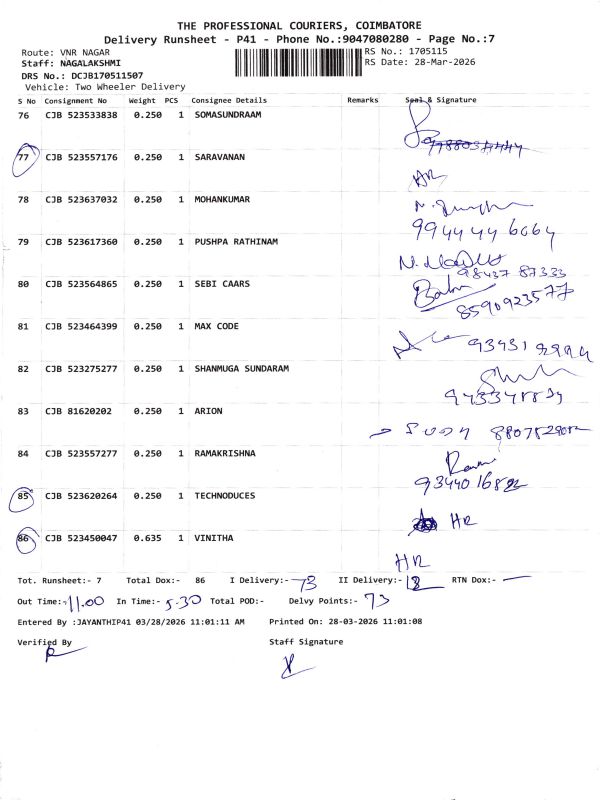 THE PROFESSIONAL COURIERS, COIMBATORE
Delivery Runsheet - P41 - Phone No.:9047080280 - Page No.:7
Route: VNR NAGAR
RS No.: 1705115
Staff: NAGALAKSHMI
RS Date: 28-Mar-2026
DRS No.: DCJB170511507
Vehicle: Two Wheeler Delivery
S No Consignment No Weight PCS Consignee Details Remarks Seal & Signature
76 CJB 523533838 0.250 1 SOMASUNDRAAM
77 CJB 523557176 0.250 1 SARAVANAN HR
78 CJB 523637032 0.250 1 MOHANKUMAR
9944446664
79 CJB 523617360 0.250 1 PUSHPA RATHINAM
98437 87333
80 CJB 523564865 0.250 1 SEBI CAARS
8590923577
81 CJB 523464399 0.250 1 MAX CODE
82 CJB 523275277 0.250 1 SHANMUGA SUNDARAM
83 CJB 81620202 0.250 1 ARION
84 CJB 523557277 0.250 1 RAMAKRISHNA
85 CJB 523620264 0.250 1 TECHNODUCES HR
86 CJB 523450047 0.635 1 VINITHA
HR
Tot. Runsheet:- 7 Total Dox:- 86 I Delivery:- 73 II Delivery:- RTN Dox:- —
Out Time:- 11.00 In Time:- 5.30 Total POD:- Delvy Points:- 73
Entered By :JAYANTHIP41 03/28/2026 11:01:11 AM Printed On: 28-03-2026 11:01:08
Verified By Staff Signature